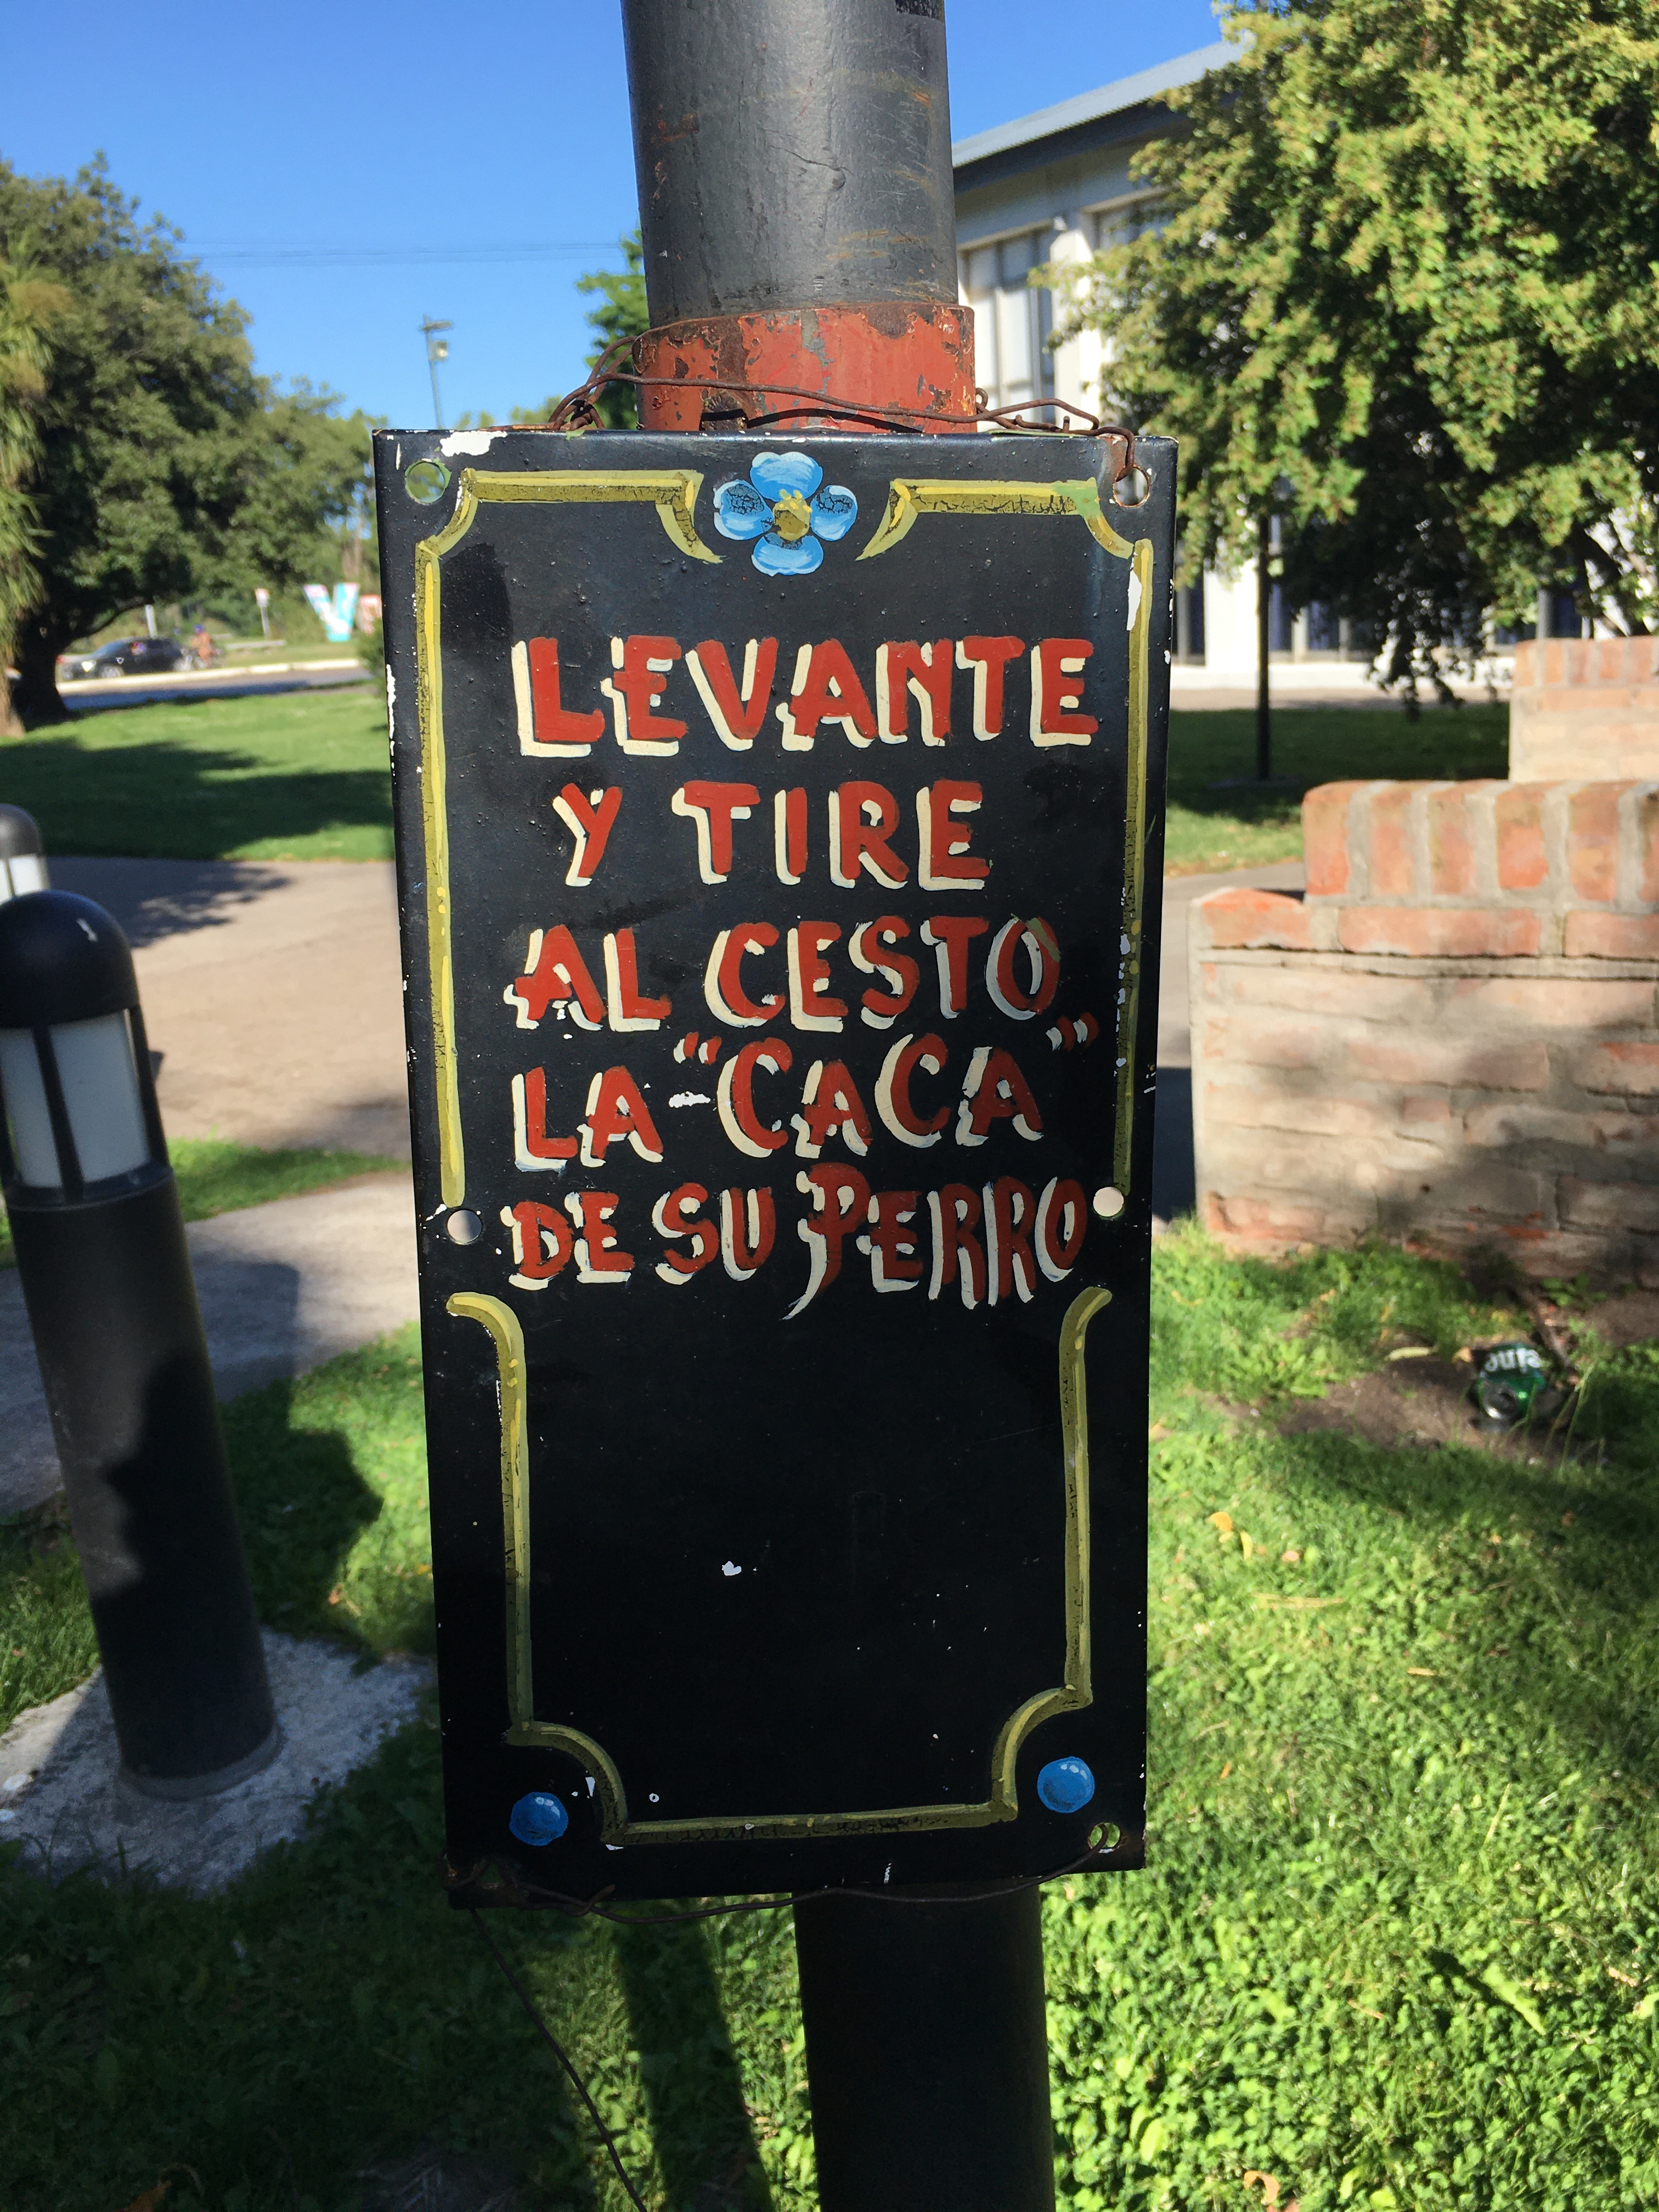 LEVANTE
Y TIRE
AL CESTO
LA "CACA"
DE SU PERRO